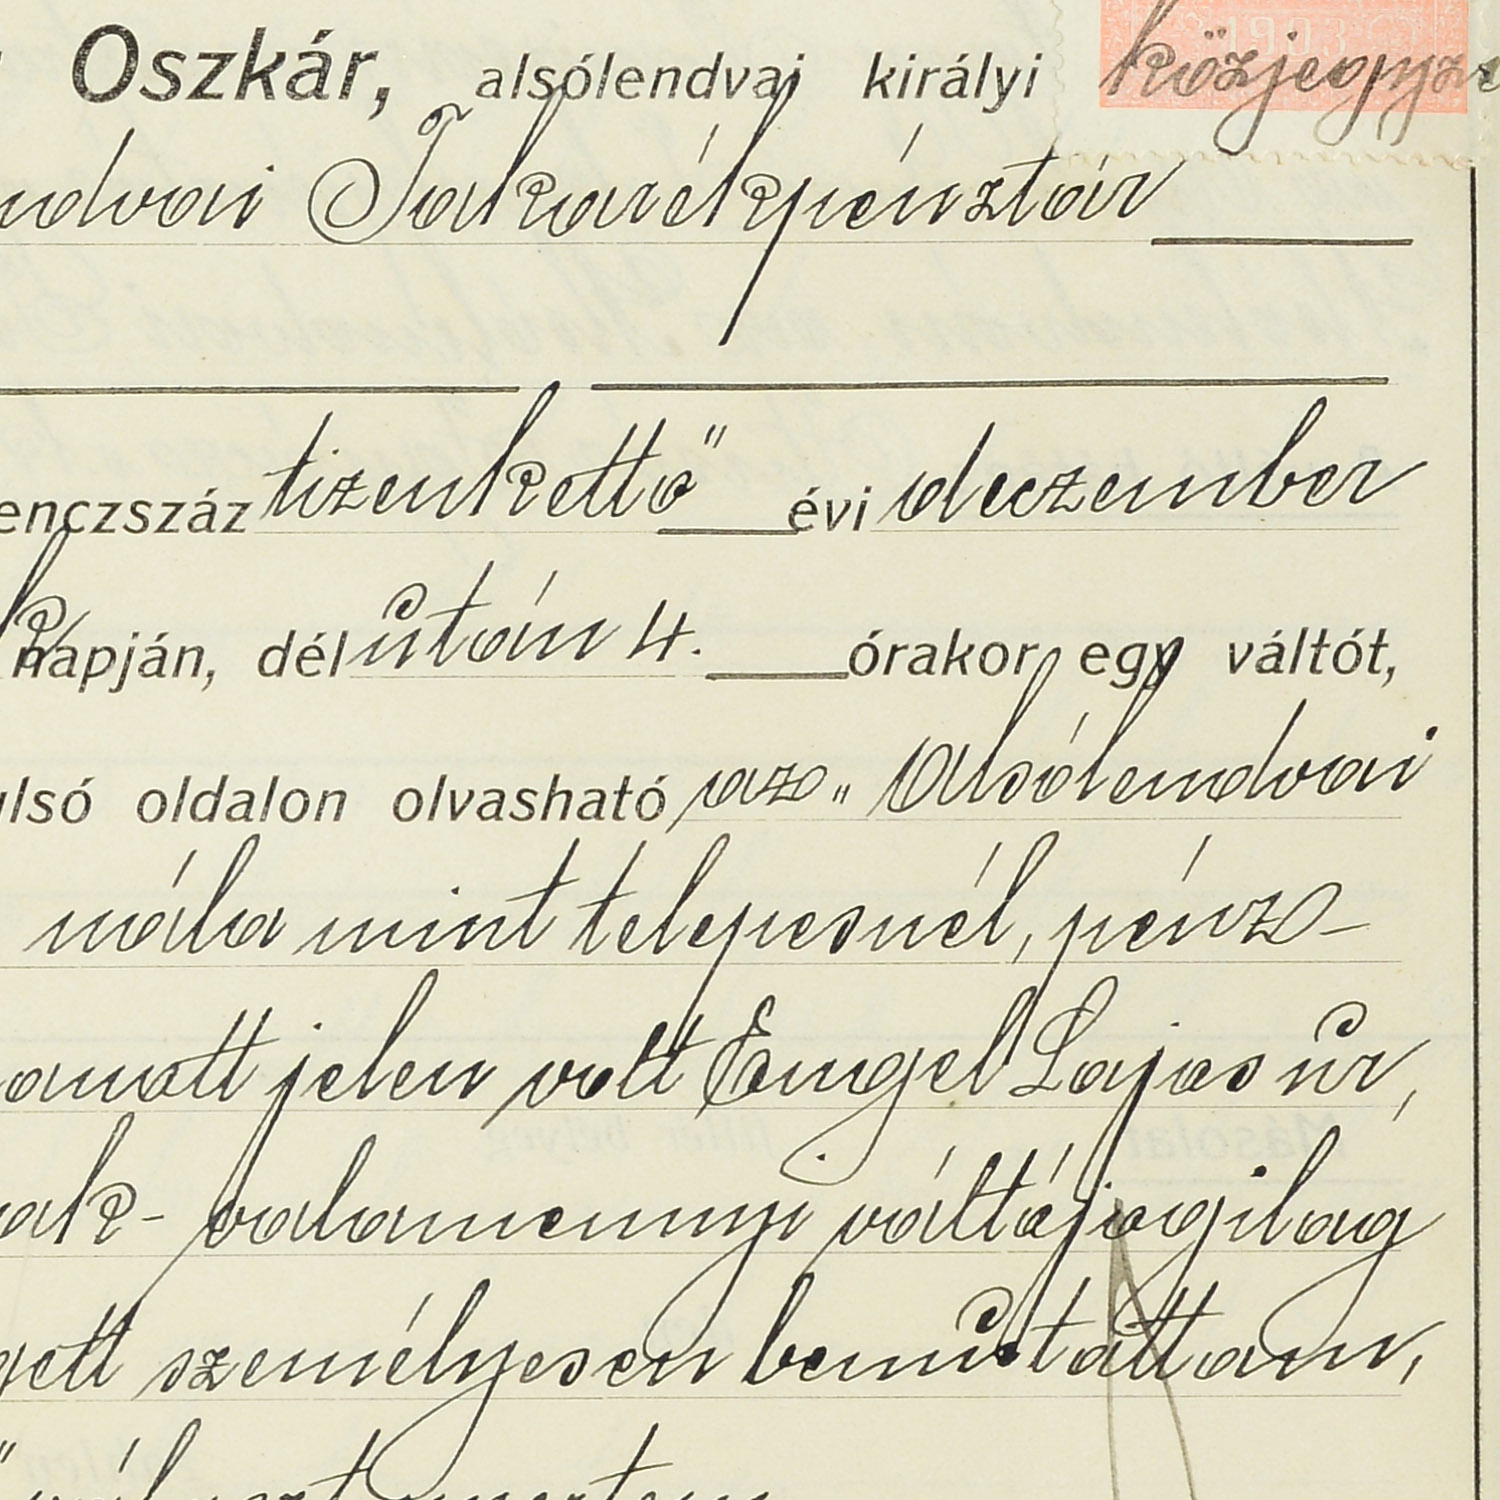 Oszkár, alsólendvai királyi közjegyző
ndvai Takarékpénztár
enczszáz tizenkettő évi deczember
napján, délután 4. órakor egy váltót,
ulsó oldalon olvasható az „Alsólendvai
nála mint telepesnél, pénz-
anott jelen volt Engel Lajos úr,
ak- valamennyi váltójogilag
gett személyesen bemutattam,